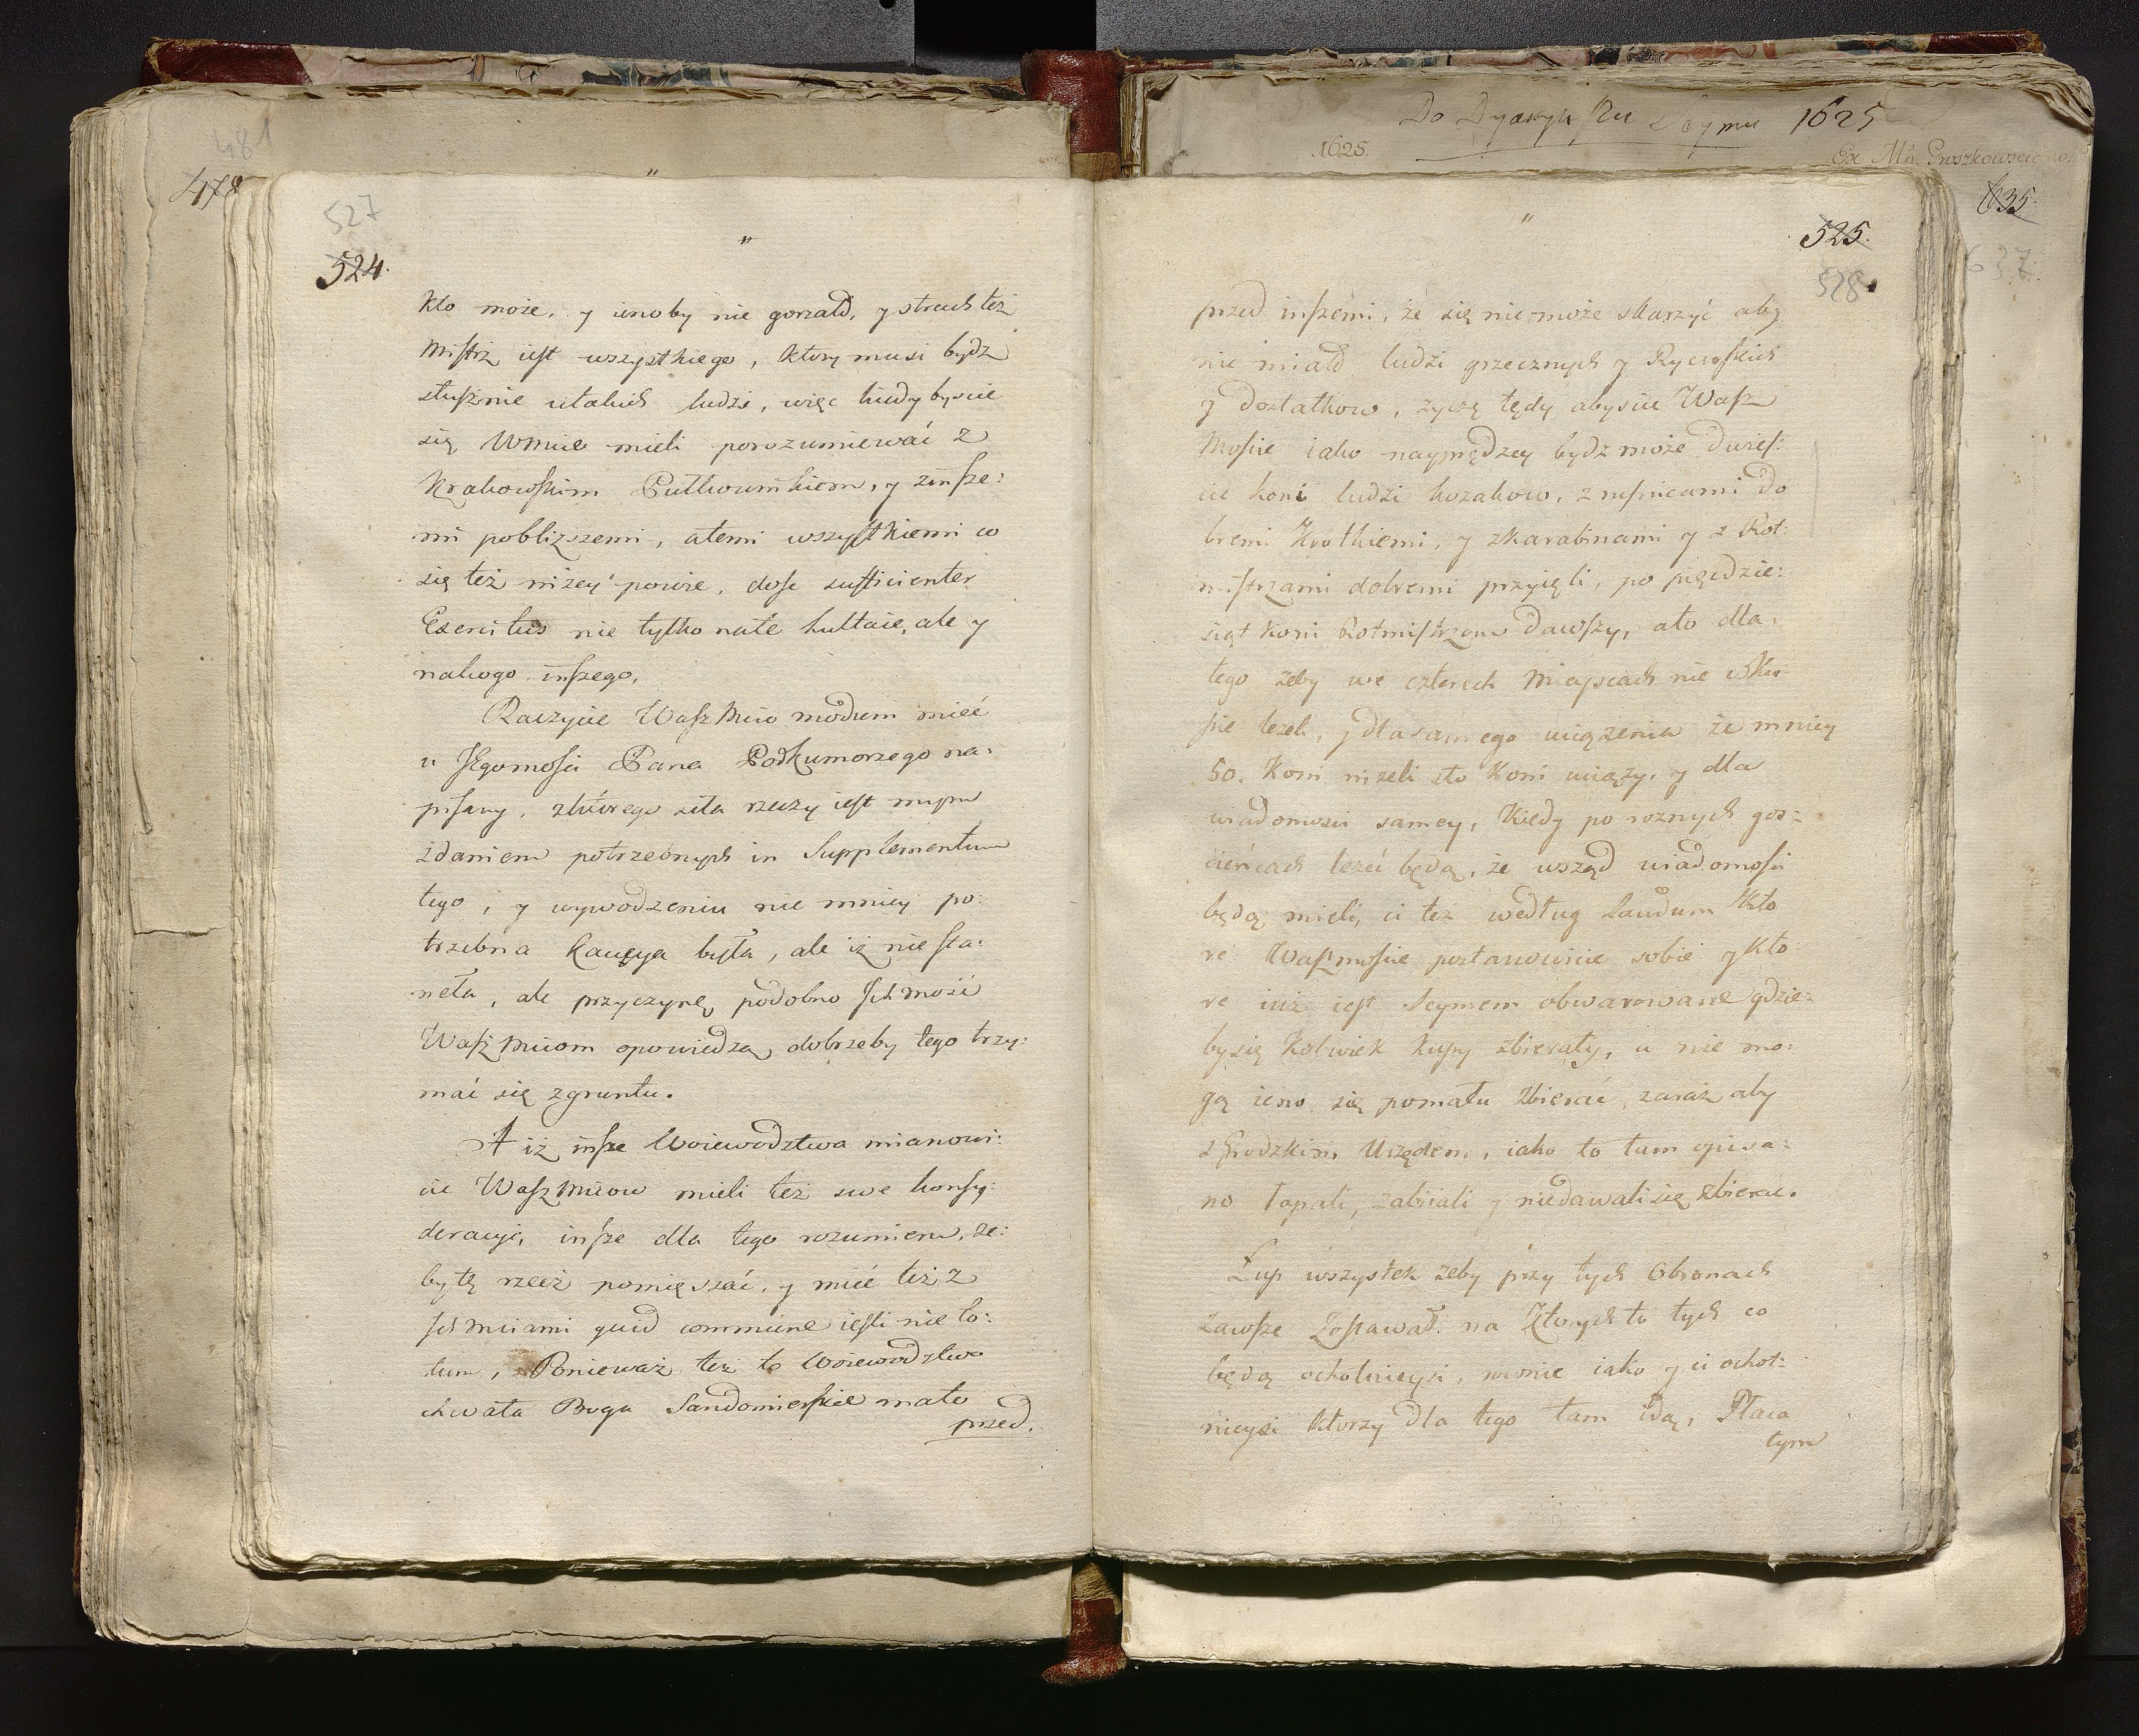 481
478
527
524.
kto może, y ieno by nie gorzał, y strach też
Mistrz iest wszystkiego, ktory musi bydz
słusznie utakich ludzi, więc kiedy byscie
się Wmcie mieli porozumiewać z
Krakowskim Pułkownikiem, y z insze:
mi pobliższemi, a temi wszystkiemi co
się też niżey powie, dosc sufficienter
Exercitus nie tylko na te hultaie, ale y
na kogo inszego.
Raczycie Wasz Mcio modum mieć
u Jegomosci Pana Podkomorzego na:
pisany, z ktorego siła rzeczy iest moym
zdaniem potrzebnych in Supplementum
tego, y wywodzeniu nie mniey po:
trzebna kaucya była, ale iż nie sta:
neła, ale przyczynę podobno Ich mość
Wasz Mciom opowiedzą, dobrze by tego trzy:
mać się z gruntu.
A iż insze Woiewodztwa mianowi:
cie Wasz Mciow mieli też swe konsy:
deracye, insze dla tego rozumiem, że:
by tę rzecz pomięszać, y mieć też z
Ich Mciami quid commune iesli nie to:
tum, Ponieważ też to Woiewodztwo
chwała Bogu Sandomierskie mało
przed.
Do Dyaryuszu Seymu 1625
1625.
Ex Ms. Groszkowsciano.
635.
637.
525.
528
przed inszemi, że się nie może skarzyć aby
nie miało ludzi grzecznych y Rycerskich
y dostatkow, życzę tedy abyscie Wasz
Moscie iako nayprędzey bydz może dwies:
cie koni ludzi kozakow, z rusnicami do
bremi krotkiemi, y z karabinami y z Rot:
mistrzami dobremi przyięli, po pięcdzie:
siąt koni Rotmistrzom dawszy, a to dla
tego żeby we czterech Mieyscach nie w ku
pie leżeli, y dla samego uciążenia że mniey
50. koni niżeli sto koni uciąży, y dla
wiadomosci samey, kiedy po roznych gos:
cińcach leżeć będą, że wsząd wiadomosci
będą mieli, ci też według Laudum kto
re Waszmoscie postanowicie sobie y kto
re iuż iest Seymem obwarowane gdzie:
by się kolwiek kupy zbierały, a nie mo:
gą ieno się pomału zbierać, zaraz aby
z Grodzkim Urzędem, iako to tam opisa:
no łapali, zabiiali y nie dawali się zbierać.
Łup wszystek żeby przy tych obronach
zawsze zostawał. na Ztwych to tych co
będą ochotnieysi, rownie iako y ci ochot:
nieysi ktorzy dla tego tam idą, Płaca
tym